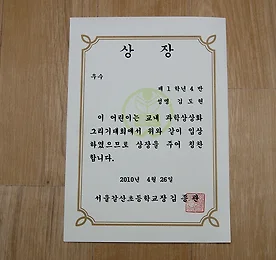 상 장
우수
제 1 학년 4 반
성명 김 도 현
이 어린이는 교내 과학상상화
그리기대회에서 위와 같이 입상
하였으므로 상장을 주어 칭찬
합니다.
2010년 4월 26일
서울잠산초등학교장 김